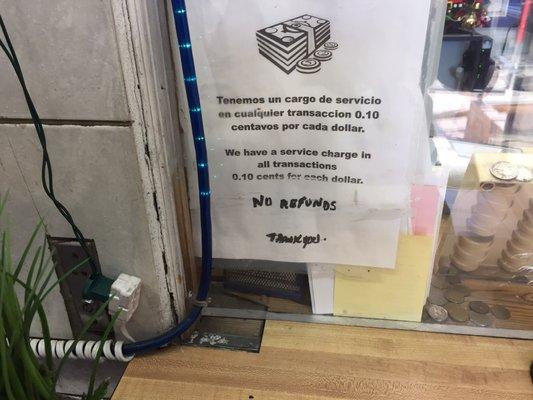 Tenemos un cargo de servicio
en cualquier transaccion 0.10
centavos por cada dollar.
We have a service charge in
all transactions
0.10 cents for each dollar.
NO REFUNDS
THANK YOU.